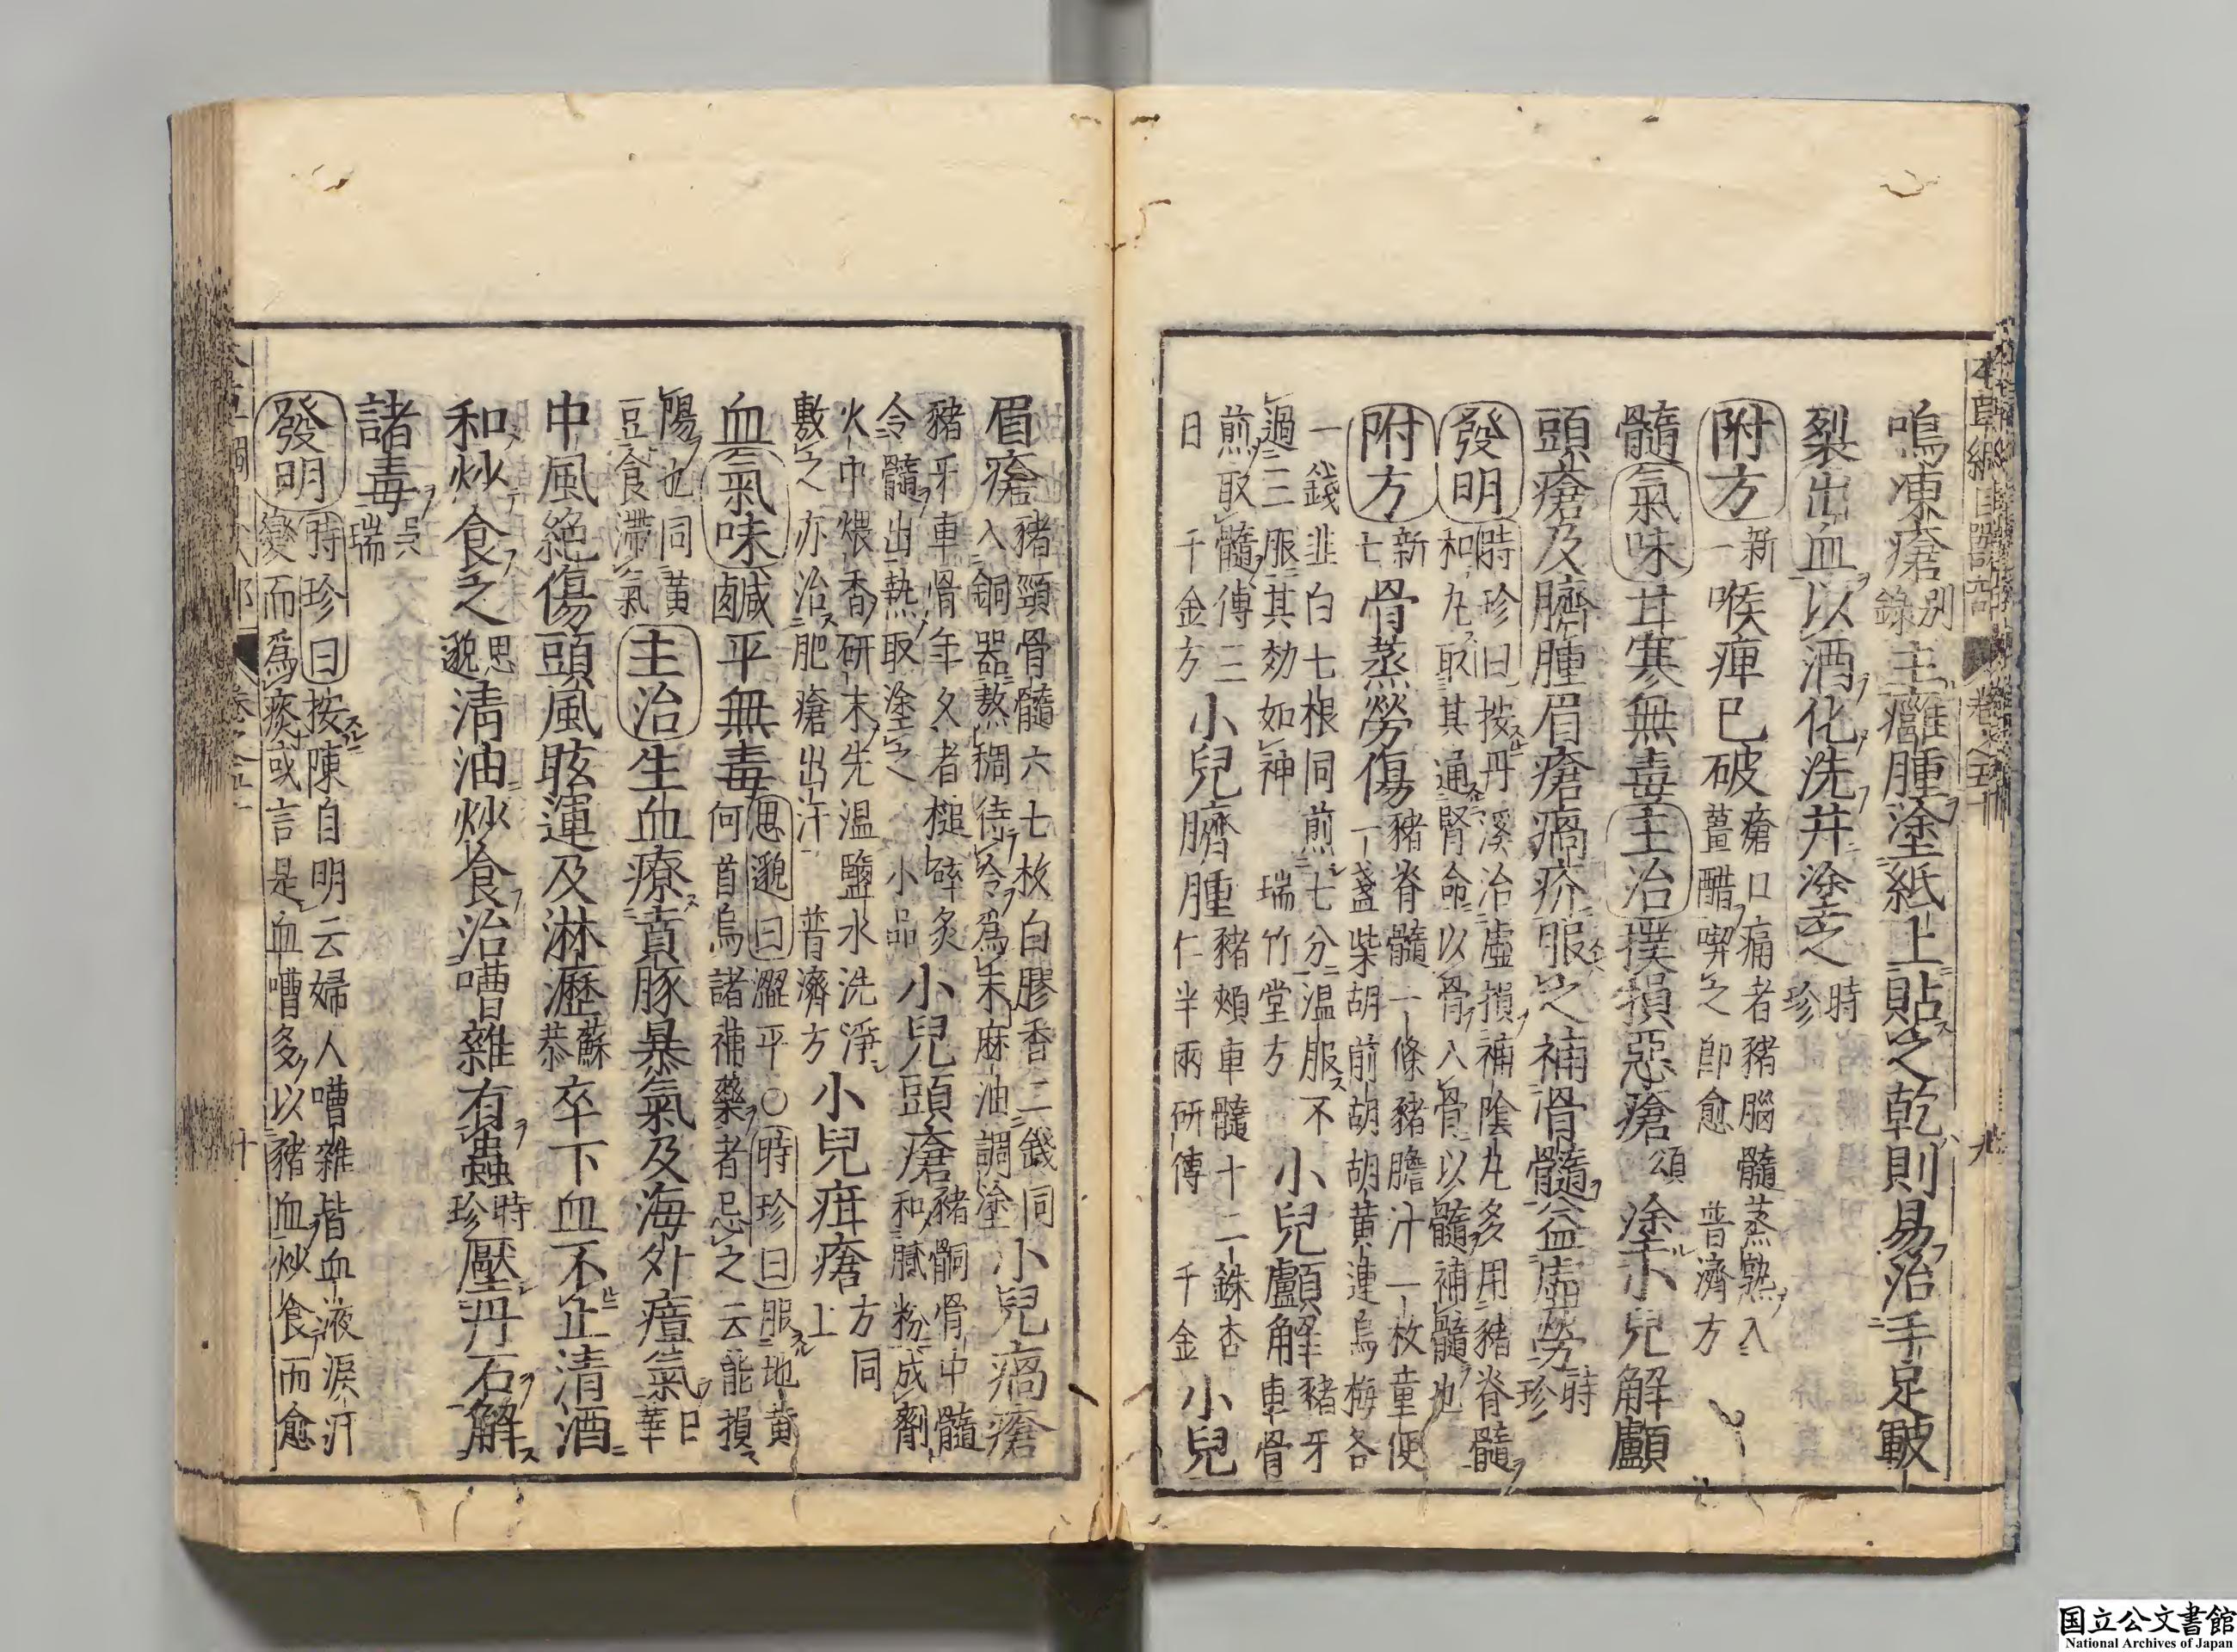 鳴凍瘡別錄主癰腫塗紙上貼之乾則易治手足皸
裂出血以酒化洗并塗之時珍
附方新一喉痺已破瘡口痛者豬腦髓蒸熟入薑醋喫之即愈普濟方
髓氣味甘寒無毒主治撲損惡瘡頌塗小兒解顱
頭瘡及臍腫眉瘡瘑疥服之補滑髓益虛勞時珍
發明時珍曰按丹溪治虛損補陰丸多用豬脊髓和丸取其通腎命以骨入骨以髓補髓也
附方新七骨蒸勞傷豬脊髓一條豬膽汁一枚童便一盞柴胡前胡胡黃連烏梅各
一錢韭白七根同煎七分溫服不過三服其効如神瑞竹堂方小兒顱解豬牙車骨
煎取髓傅三日千金方小兒臍腫豬頰車髓十二銖杏仁半兩研傅千金小兒
眉瘡豬頸骨髓六七枚白膠香二錢同入銅器熬稠待冷為末麻油調塗小兒瘑瘡
豬牙車骨年久者槌碎炙令髓出熱取塗之小品小兒頭瘡豬䯚骨中髓和膩粉成劑
火中煨香研末先溫鹽水洗淨敷之亦治肥瘡出汗普濟方小兒疳瘡方同上
血氣味鹹平無毒思邈曰澀平○時珍曰服地黃何首烏諸補藥者忌之云能損
陽也同黃豆食滯氣主治生血療賁豚暴氣及海外瘴氣日華
中風絕傷頭風眩運及淋瀝蘇恭卒下血不止清酒
和炒食之思邈清油炒食治嘈雜有蟲時珍壓丹石解
諸毒吳瑞
發明時珍曰按陳自明云婦人嘈雜皆血液淚汗變而為痰或言是血嘈多以豬血炒食而愈
本草綱目獸部 卷之五十 九
卷之五十 十
国立公文書館
National Archives of Japan